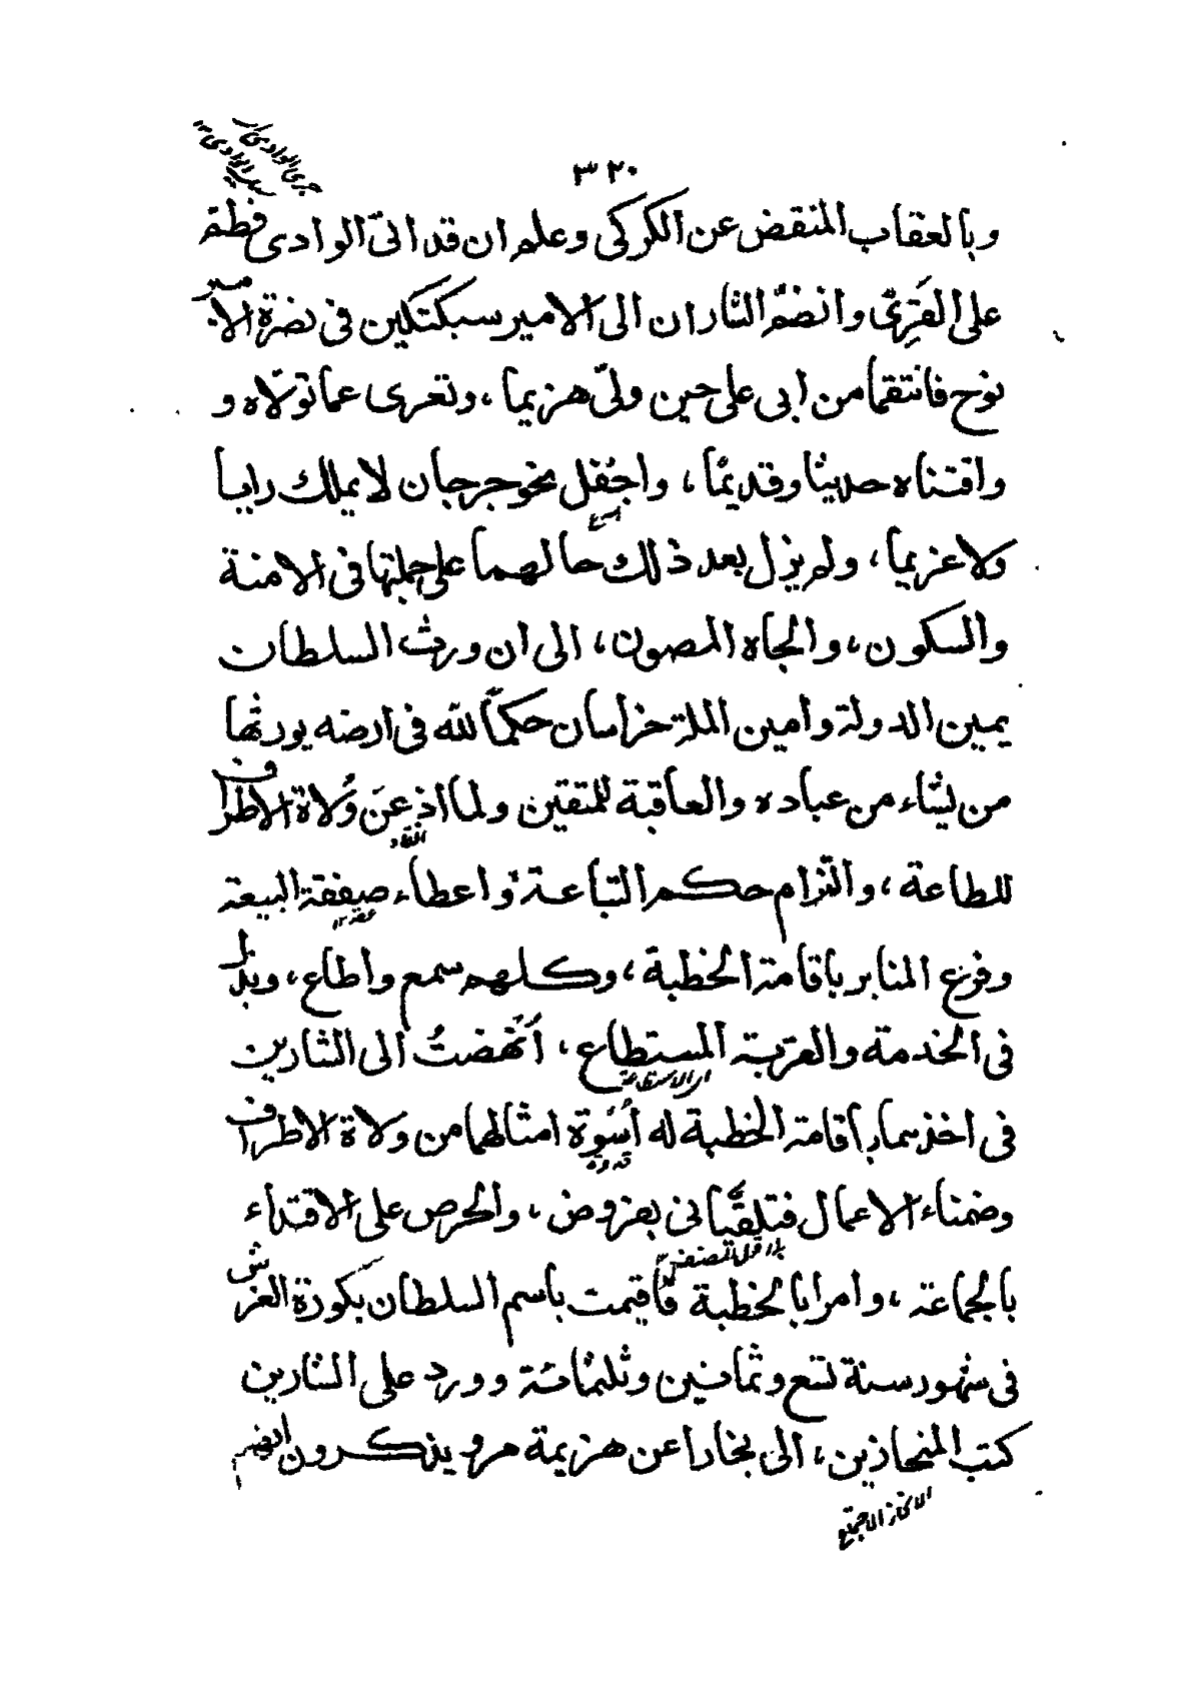 ٣٢٠
وبالعقاب المنقض عن الكركى وعلم ان قد اتىّ الوادى فطمّ
على القَرِىّ وانضمّ الشاران الى الامير سبكتكين فى نصرة الامير
نوح فانتقما من ابى على حين ولىّ هزيما، وتعرى عما تولّاه و
واقتناه حديثا وقديمًا، واجفل نحو جرجان لا يملك رايا
اسرع
ولا عزيما، ولم يزل بعد ذلك حالهما على جملتها فى الامنة
والسكون، والجاه المصون، الى ان ورث السلطان
يمين الدولة وامين الملة خراسان حكمًا لله فى ارضه يورثها
من يشاء من عباده والعاقبة للمتقين ولما اذعن وُلاة الاطراف
انقاد
للطاعة، والتزام حكم التباعة، واعطاء صفقة البيعة
وفرع المنابر باقامة الخطبة، وكلهم سمع واطاع، وبذل
فى الخدمة والقربة المستطاع، أُنهضتُ الى الشارين
اى الاستطاعة
فى اخذهما باقامة الخطبة له أسْوة امثالهما من ولاة الاطراف
قدوة
وضمناء الاعمال فتلقّيانى بفروض، والحرص على الاقتداء
بالجماعة، وامرا بالخطبة فاقيمت باسم السلطان بكورة الغرش
فى شهور سنة تسع وثمانين وثلثمائة وورد على الشارين
كتب المنحاذين، الى بخارا عن هزيمة مرو يذكرون انهم